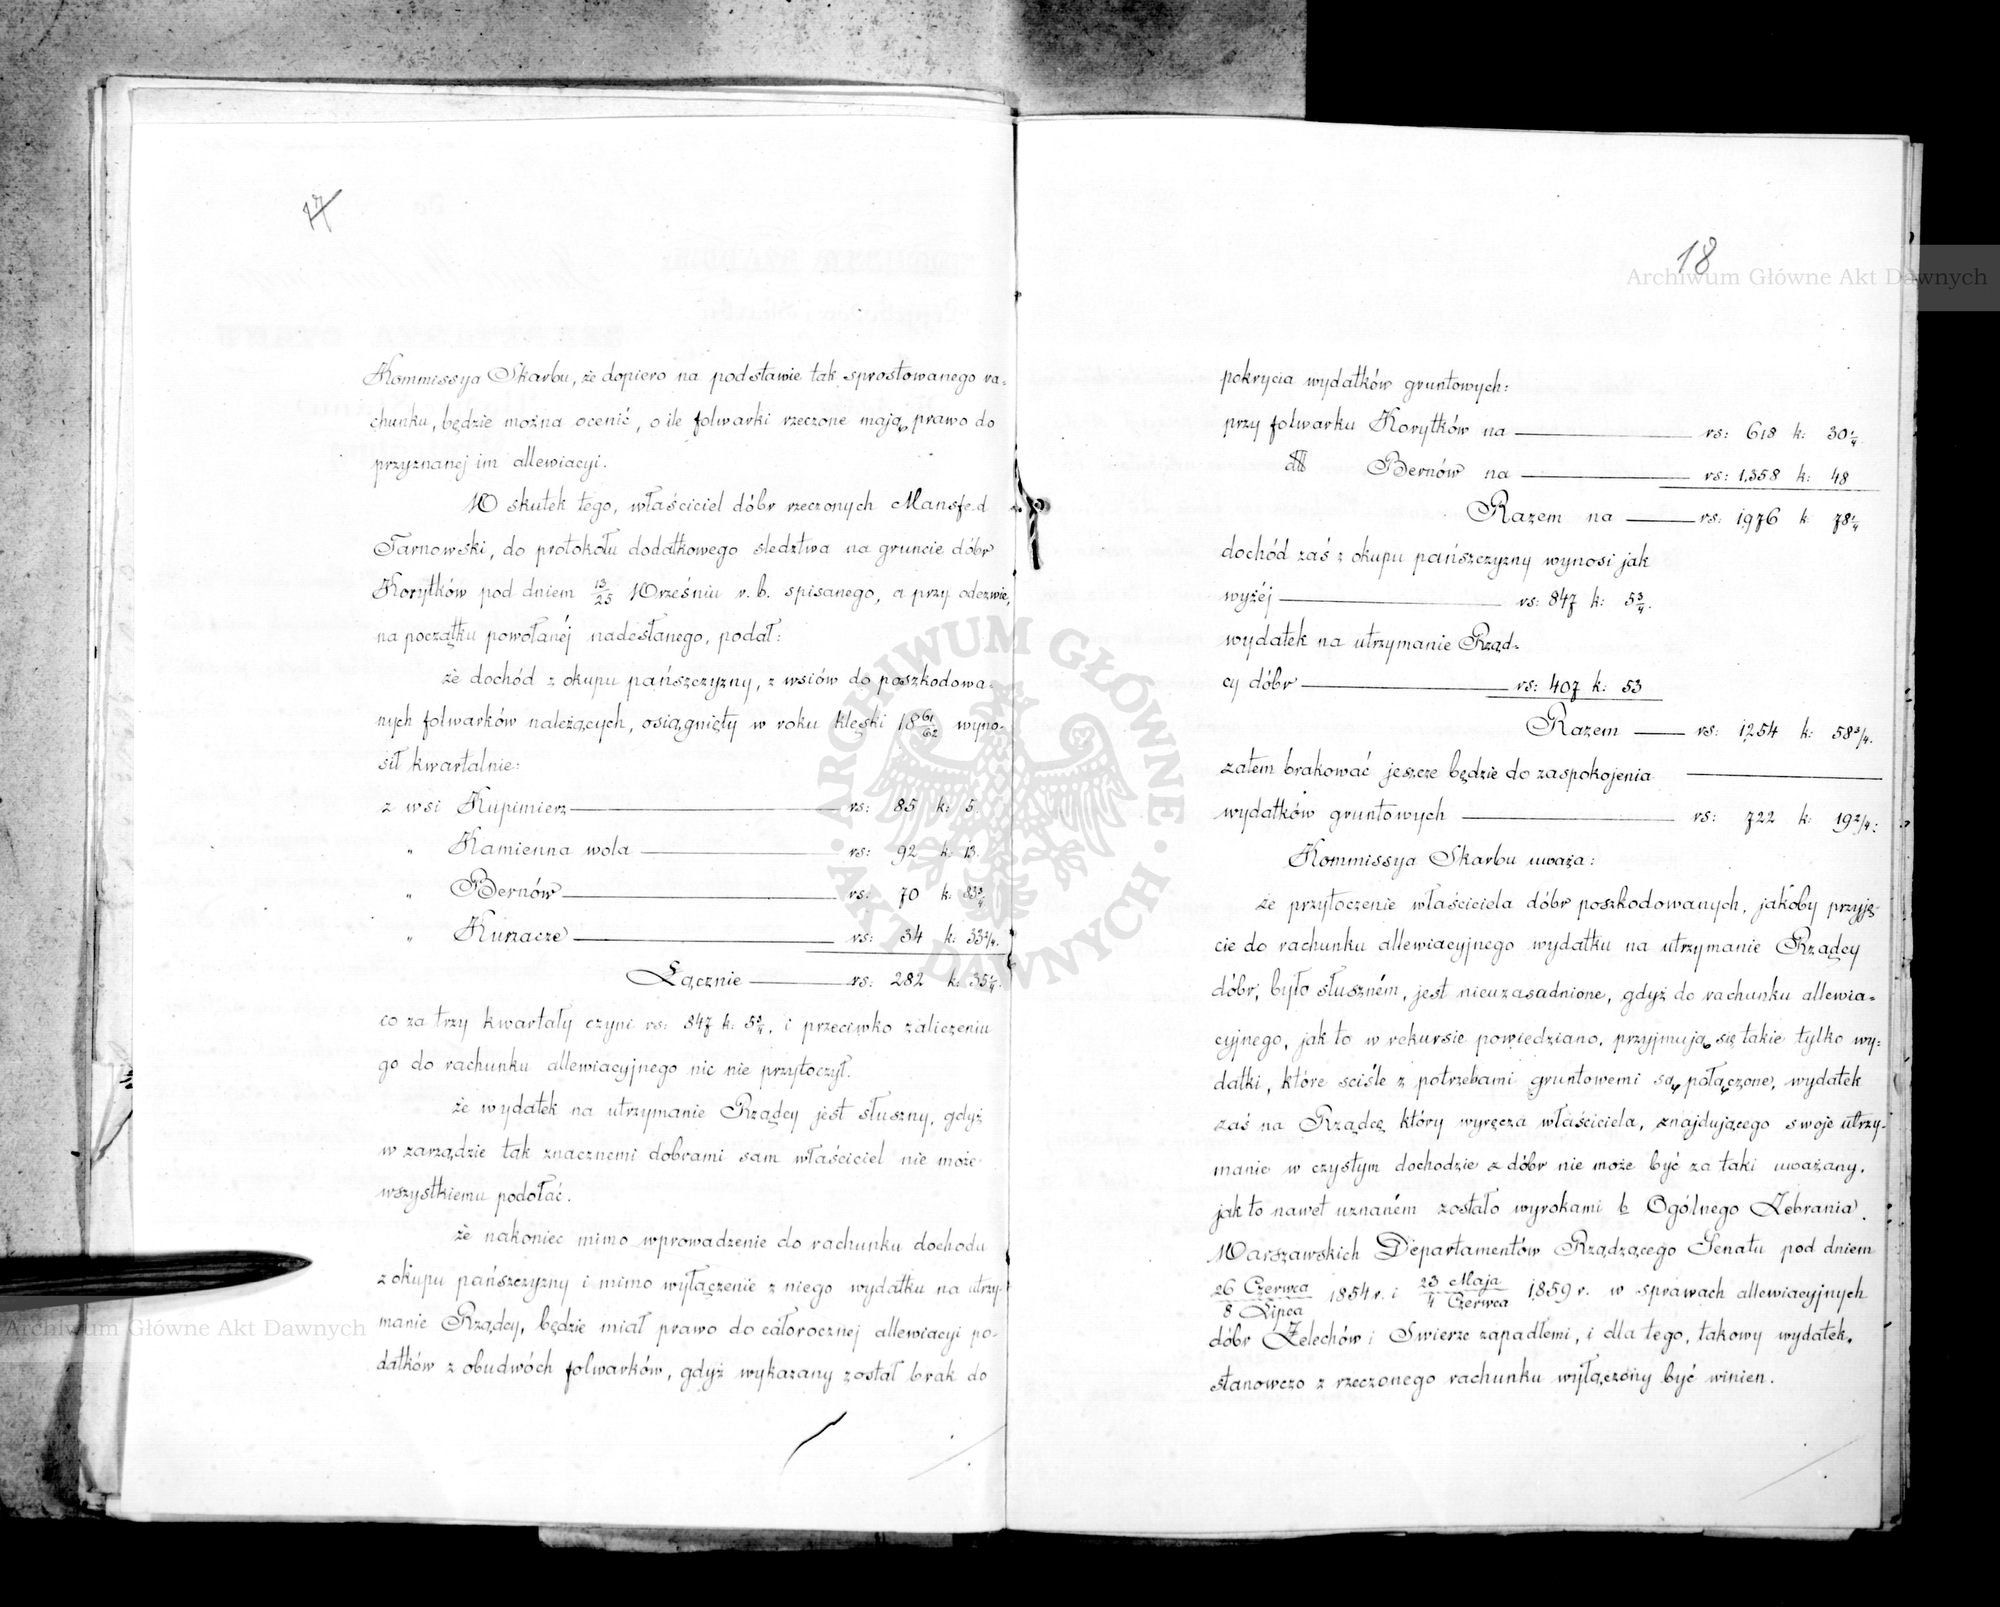 17
Kommissya Skarbu, że dopiero na podstawie tak sprostowanego ra-
chunku, będzie można ocenić, o ile folwarki rzeczone mają prawo do
przyznanej im allewiacyi.
W skutek tego, właściciel dóbr rzeczonych Mansfed
Tarnowski, do protokołu dodatkowego śledztwa na gruncie dóbr
Korytków pod dniem 13/25 Wrześniu r. b. spisanego, a przy odezwie,
na początku powołanéj nadesłanego, podał:
że dochód z okupu pańszczyzny, z wsiów do poszkodowa-
nych folwarków należących, osiągnięty w roku klęski 1861/62 wyno-
sił kwartalnie:
z wsi Kupimierz rs: 85 k: 5.
" Kamienna wola rs: 92 k: 13.
" Bernów rs: 70 k: 83 3/4
" Kurzacze rs: 34 k: 33 2/4.
Łącznie rs: 282 k: 35 1/4.
co za trzy kwartały czyni rs: 847 k: 5 3/4, i przeciwko zaliczeniu
go do rachunku allewiacyjnego nic nie przytoczył.
że wydatek na utrzymanie Rządcy jest słuszny, gdyż
w zarządzie tak znacznemi dobrami sam właściciel nie może
wszystkiemu podołać.
że nakoniec mimo wprowadzenie do rachunku dochodu
z okupu pańszczyzny i mimo wyłączenie z niego wydatku na utrzy-
manie Rządcy, będzie miał prawo do całorocznej allewiacyi po-
datków z obudwóch folwarków, gdyż wykazany został brak do
18
pokrycia wydatków gruntowych:
przy folwarku Korytków na rs: 618 k: 30 1/4.
dtt Bernów na rs: 1,358 k: 48
Razem na rs: 1976 k: 78 1/4
dochód zaś z okupu pańszczyzny wynosi jak
wyżéj rs: 847 k: 5 3/4.
wydatek na utrzymanie Rząd-
cy dóbr rs: 407 k: 53
Razem rs: 1254 k: 58 3/4.
zatem brakować jeszcze będzie do zaspokojenia
wydatków gruntowych rs: 722 k: 19 2/4:
Kommissya Skarbu uważa:
że przytoczenie właściciela dóbr poszkodowanych, jakoby przyję-
cie do rachunku allewiacyjnego wydatku na utrzymanie Rządcy
dóbr, było słuszném, jest nieuzasadnione, gdyż do rachunku allewia-
cyjnego, jak to w rekursie powiedziano, przyjmują się takie tylko wy-
datki, które sciśle z potrzebami gruntowemi są połączone, wydatek
zaś na Rządcę który wyręcza właściciela, znajdującego swoje utrzy-
manie w czystym dochodzie z dóbr nie może być za taki uważany.
jak to nawet uznaném zostało wyrokami b Ogólnego Zebrania
Warszawskich Departamentów Rządzącego Senatu pod dniem
26 Czerwca/8 Lipca 1854 r. i 23 Maja/4 Czerwca 1859 r. w sprawach allewiacyjnych
dóbr Żelechów i Swierze zapadłemi, i dla tego, takowy wydatek,
stanowczo z rzeczonego rachunku wyłączony być winien.
Archiwum Główne Akt Dawnych
ARCHIWUM GŁÓWNE AKT DAWNYCH
Archiwum Główne Akt Dawnych